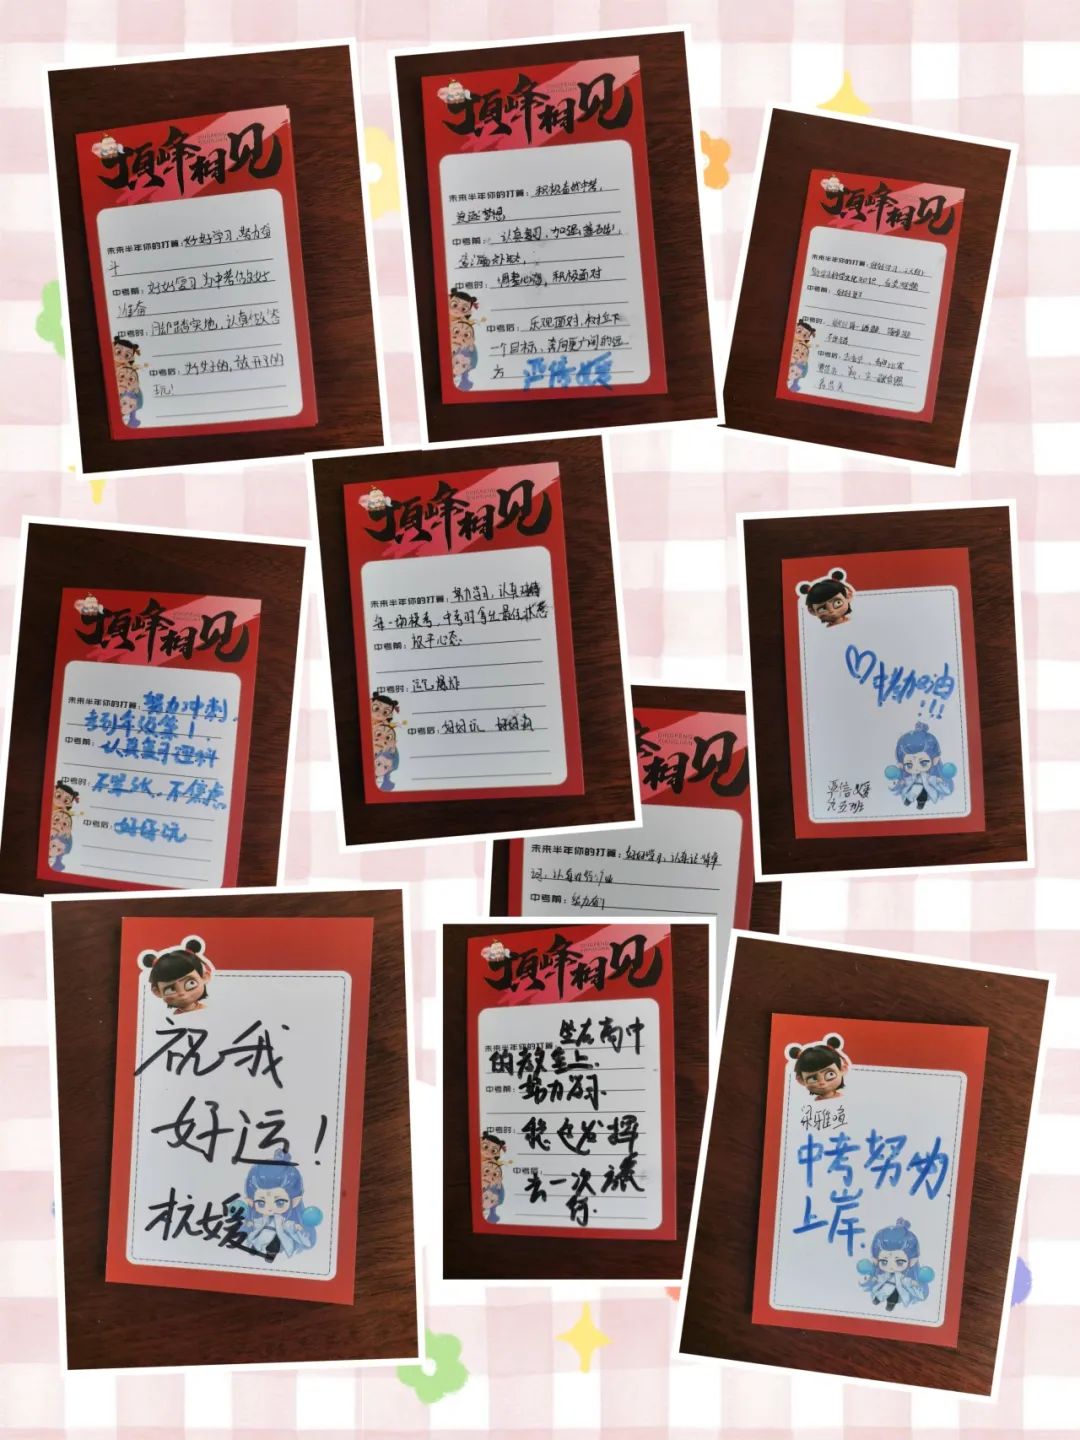 顶峰相见
DINGFENG
XIANGJIAN
未来半年你的打算:好好学习,努力奋
斗
中考前:好好复习为中考做好
准备
中考时:脚踏实地,认真做答
中考后:好好的,放开了的
玩!
顶峰相见
DINGFENG
XIANGJIAN
未来半年你的打算:积极备战中考,
追逐梦想
中考前:认真复习,加强基础,
查漏补缺,
调整心态,积极面对
中考后:乐观面对,树立下
一个目标,奔向更广阔的远
方
严倍媛
顶峰相见
未来半年你的打算:
中考前:好好复习
中考时:
中考后:
顶峰相见
未来半年你的打算:努力冲刺,
中考前:认真复习理科
中考时:不紧张,不焦虑
中考后:好好玩
顶峰相见
DINGFENG
XIANGJIAN
未来半年你的打算:努力学习,认真对待
每一场模考,中考时拿出最佳状态
中考前:放平心态
中考时:运气爆炸
中考后:好好玩 好好
中考加油
!!!
严倍媛
九五班
峰相见
DINGFENG
XIANGJIAN
未来半年你的打算:好好学习,认真
中考前:努力
祝我
好运!
杭媛
顶峰相见
DINGFENG
XIANGJIAN
未来半年你的打算:坐在高中
的教室上.
中考前:努力学习.
中考时:稳定发挥
中考后:去一次旅
行.
中考努力
上岸.